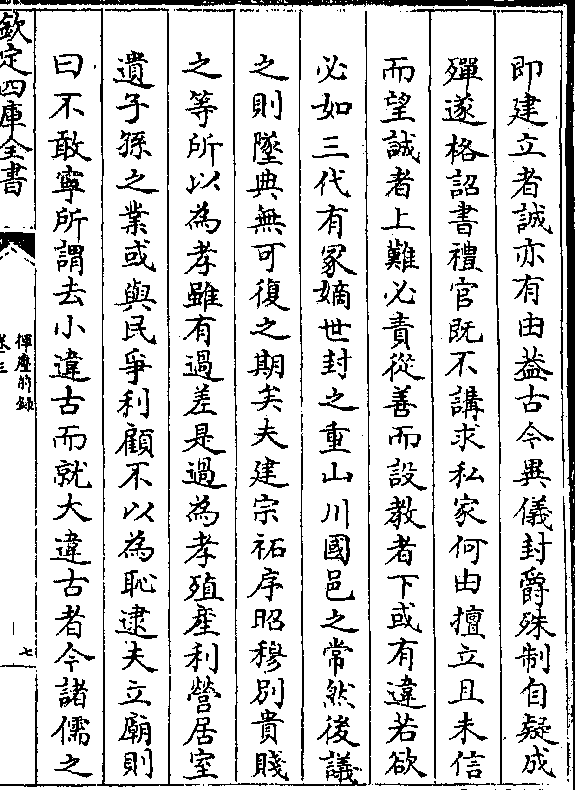 即建立者誠亦有由益古今異儀封爵殊制自疑成
殫遂格詔書禮官既不講求私家何由擅立且未信
而望誠者上難必責從善而設教者下或有違若欲
必如三代有冡嫡世封之重山川國邑之常然後議
之則墜典無可復之期矣夫建宗祏序昭穆別貴賤
之等所以為孝雖有過差是過為孝殖產利營居室
遺子孫之業或與民爭利顧不以為恥逮夫立廟則
曰不敢寧所謂去小違古而就大違古者今諸儒之
欽定四庫全書
揮麈前錄
卷三
七